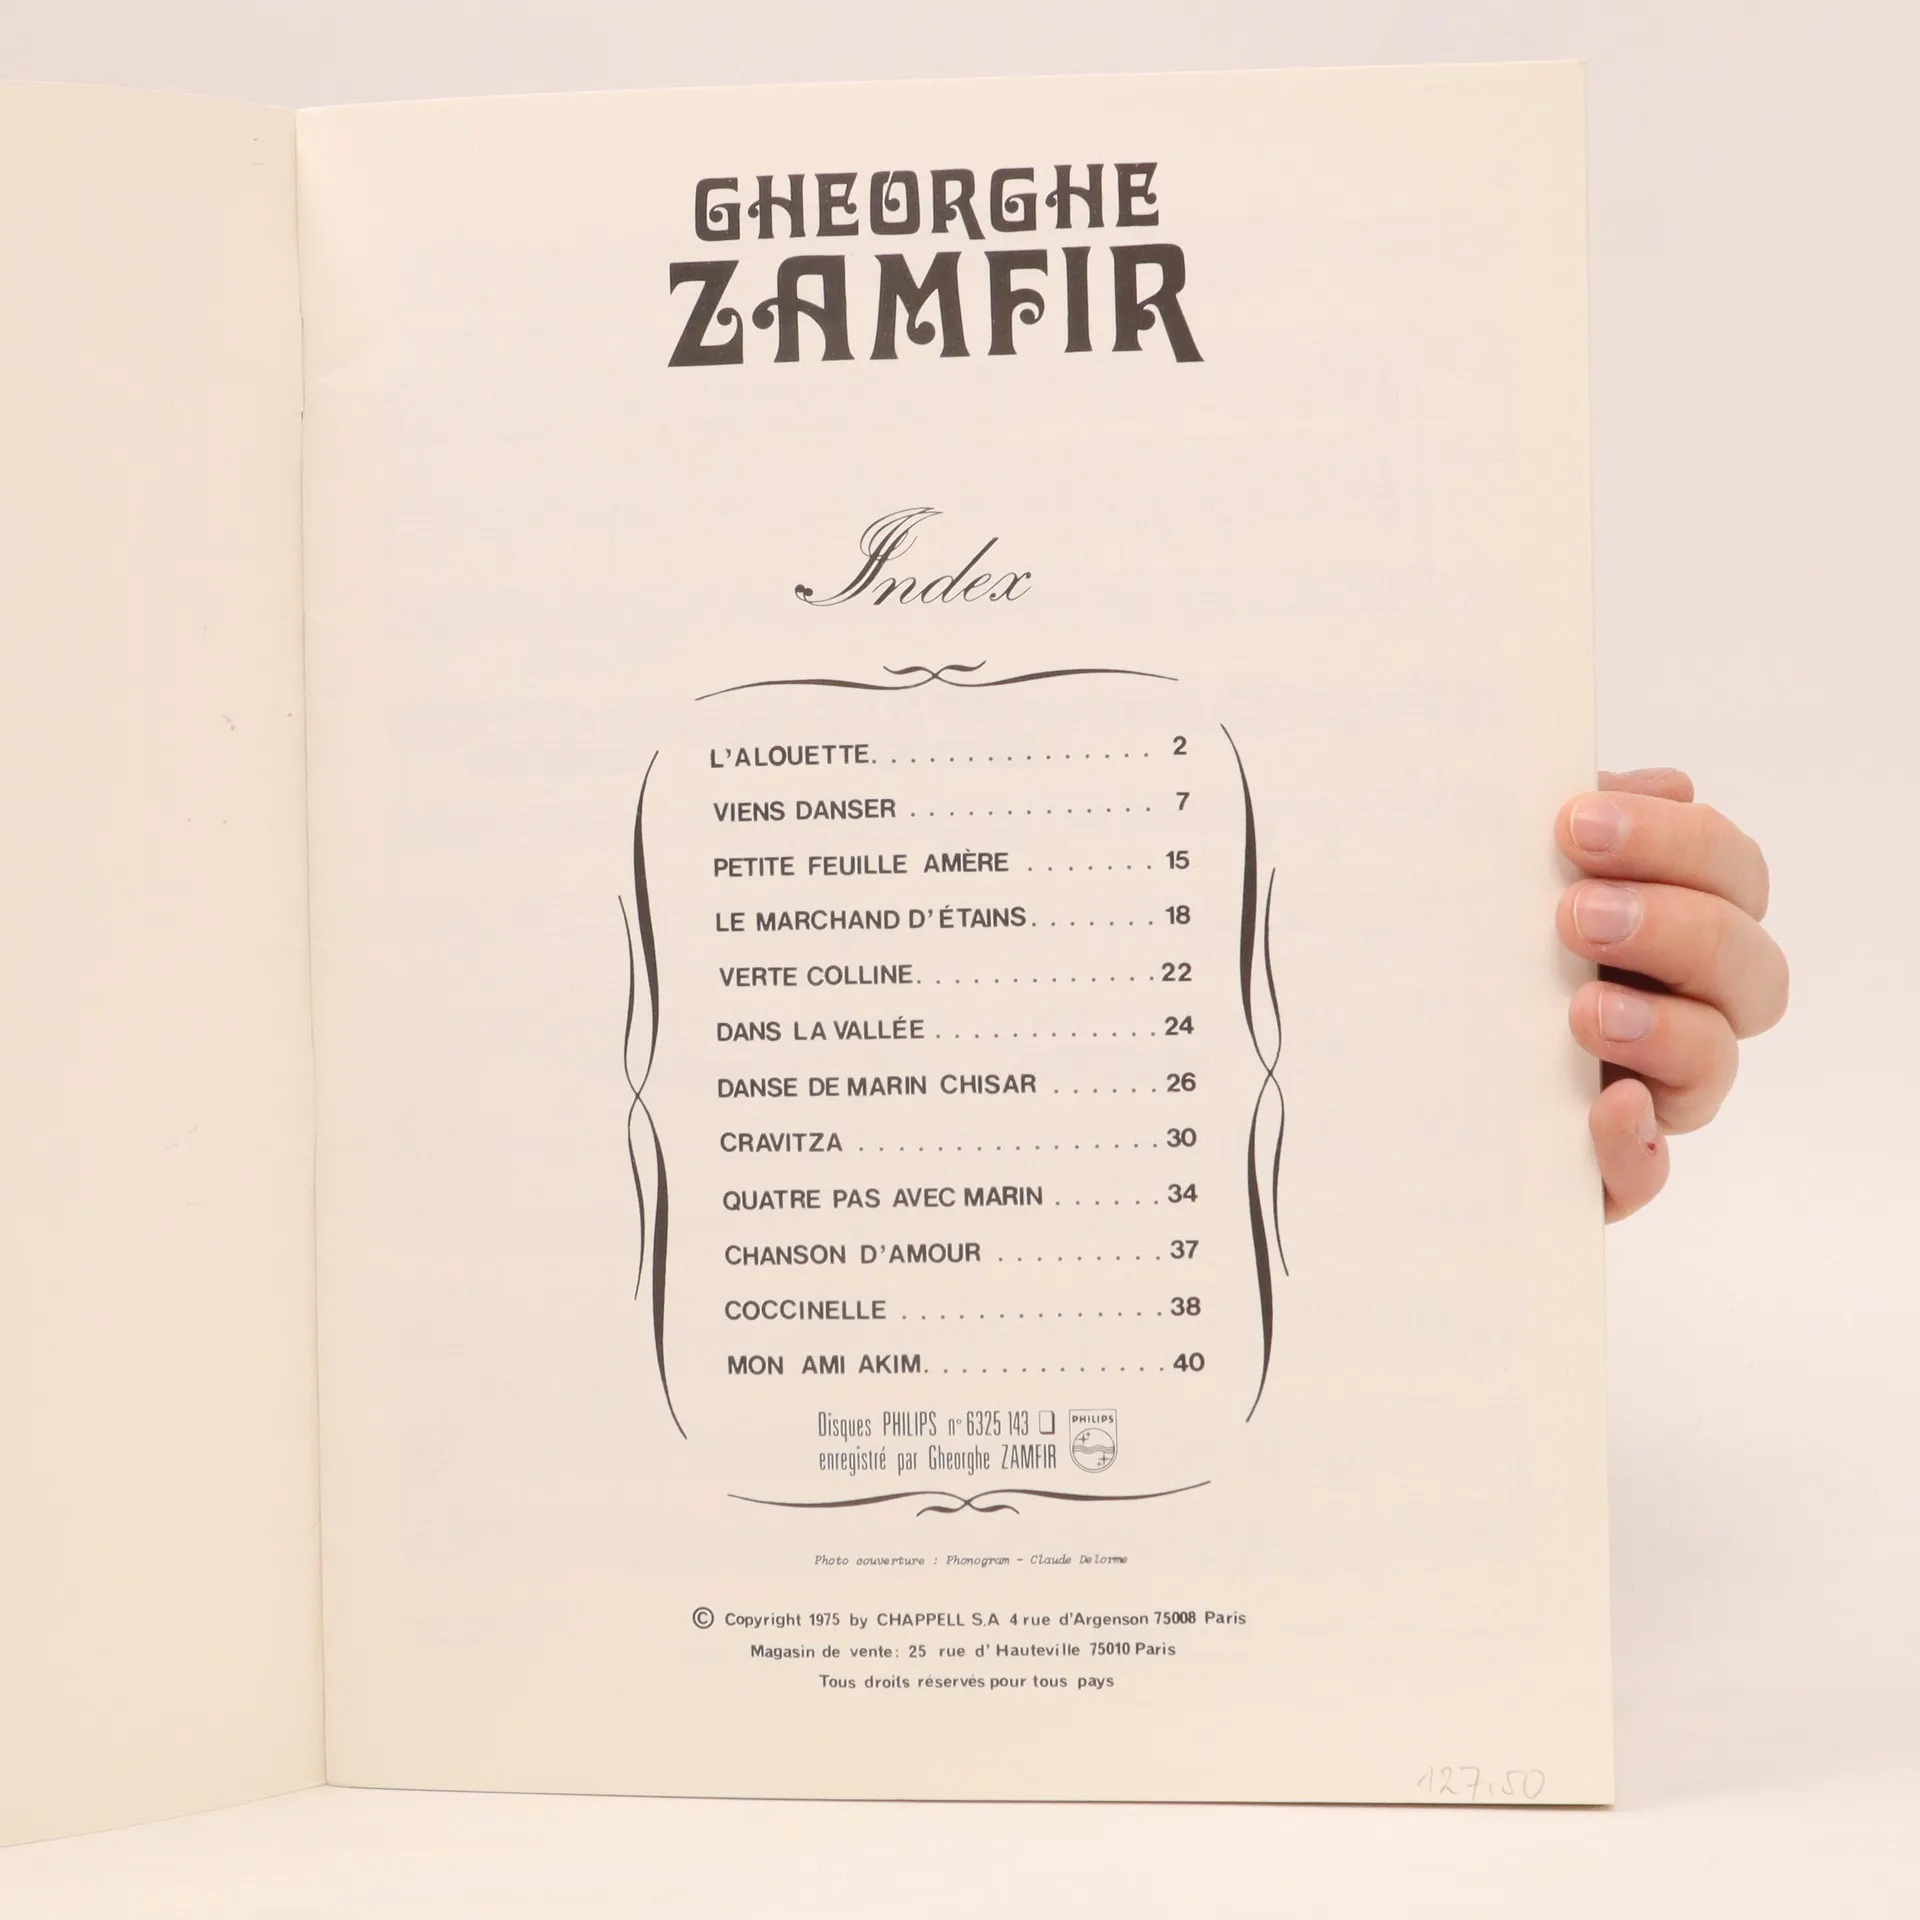 GHEORGHE
ZAMFIR
Index
L'ALOUETTE. . . . . . . . . . . . . . . 2
VIENS DANSER . . . . . . . . . . . . . 7
PETITE FEUILLE AMÈRE . . . . . . . 15
LE MARCHAND D'ÉTAINS. . . . . . . 18
VERTE COLLINE. . . . . . . . . . . . . 22
DANS LA VALLÉE . . . . . . . . . . . . 24
DANSE DE MARIN CHISAR . . . . . . 26
CRAVITZA . . . . . . . . . . . . . . . 30
QUATRE PAS AVEC MARIN . . . . . . 34
CHANSON D'AMOUR . . . . . . . . . 37
COCCINELLE . . . . . . . . . . . . . . 38
MON AMI AKIM. . . . . . . . . . . . . 40
Disques PHILIPS n° 6325 143 PHILIPS
enregistré par Gheorghe ZAMFIR
Photo couverture : Phonogram - Claude Delorme
© Copyright 1975 by CHAPPELL S.A 4 rue d'Argenson 75008 Paris
Magasin de vente: 25 rue d'Hauteville 75010 Paris
Tous droits réservés pour tous pays
127,50